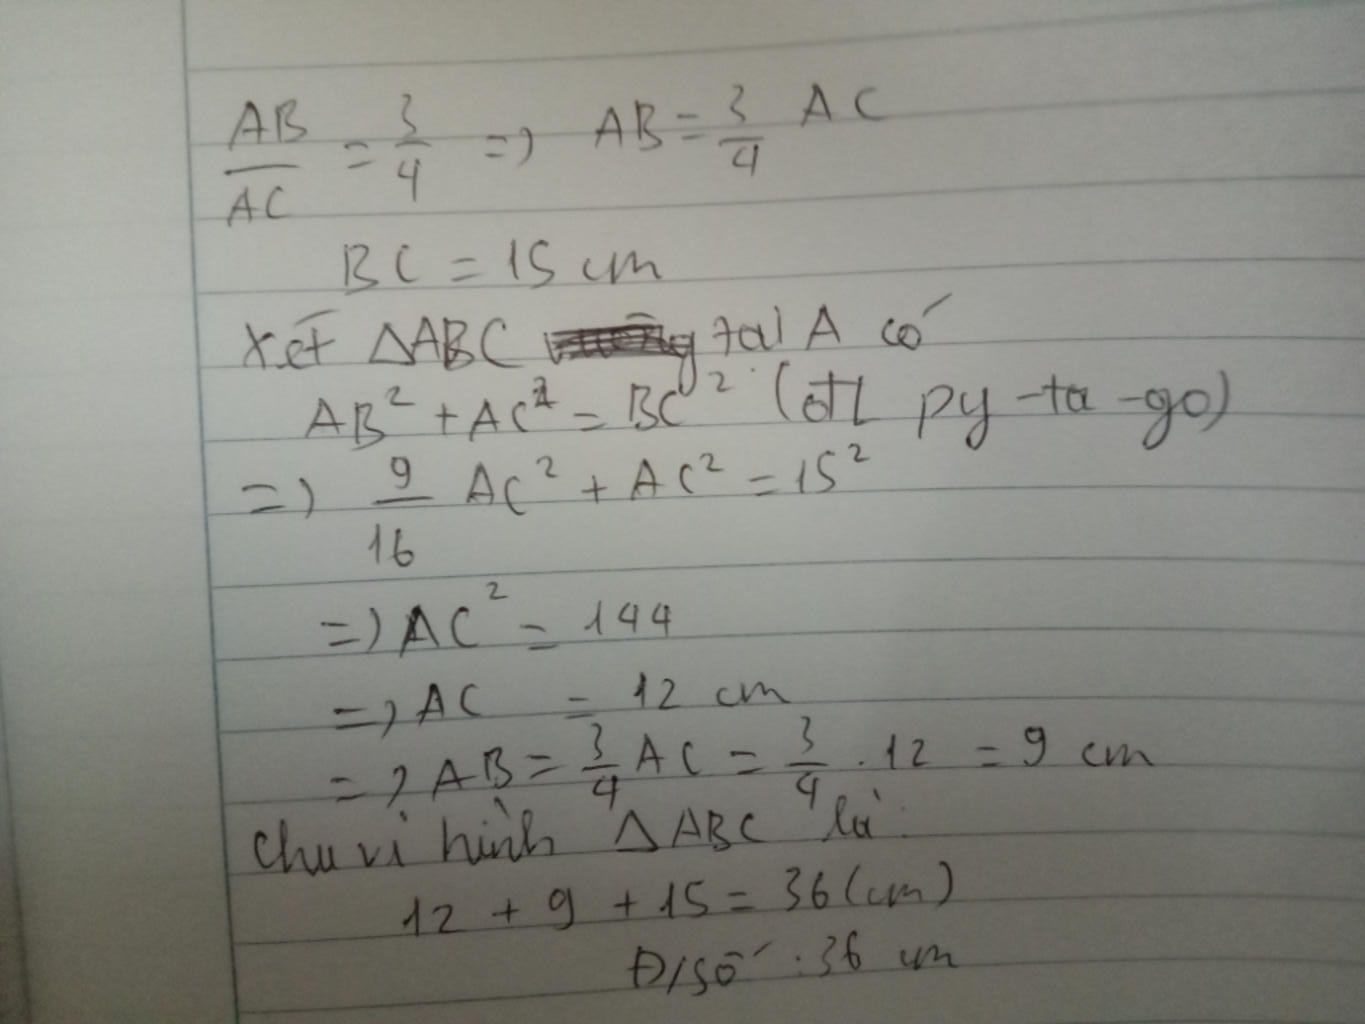 AB/AC = 3/4 => AB = 3/4 AC
BC = 15 cm
Xét ΔABC tại A có
AB² + AC² = BC² (đtl py-ta-go)
=> 9/16 AC² + AC² = 15²
=> AC² = 144
=> AC = 12 cm
=> AB = 3/4 AC = 3/4 . 12 = 9 cm
Chu vi hình ΔABC là:
12 + 9 + 15 = 36 (cm)
Đ/số : 36 cm